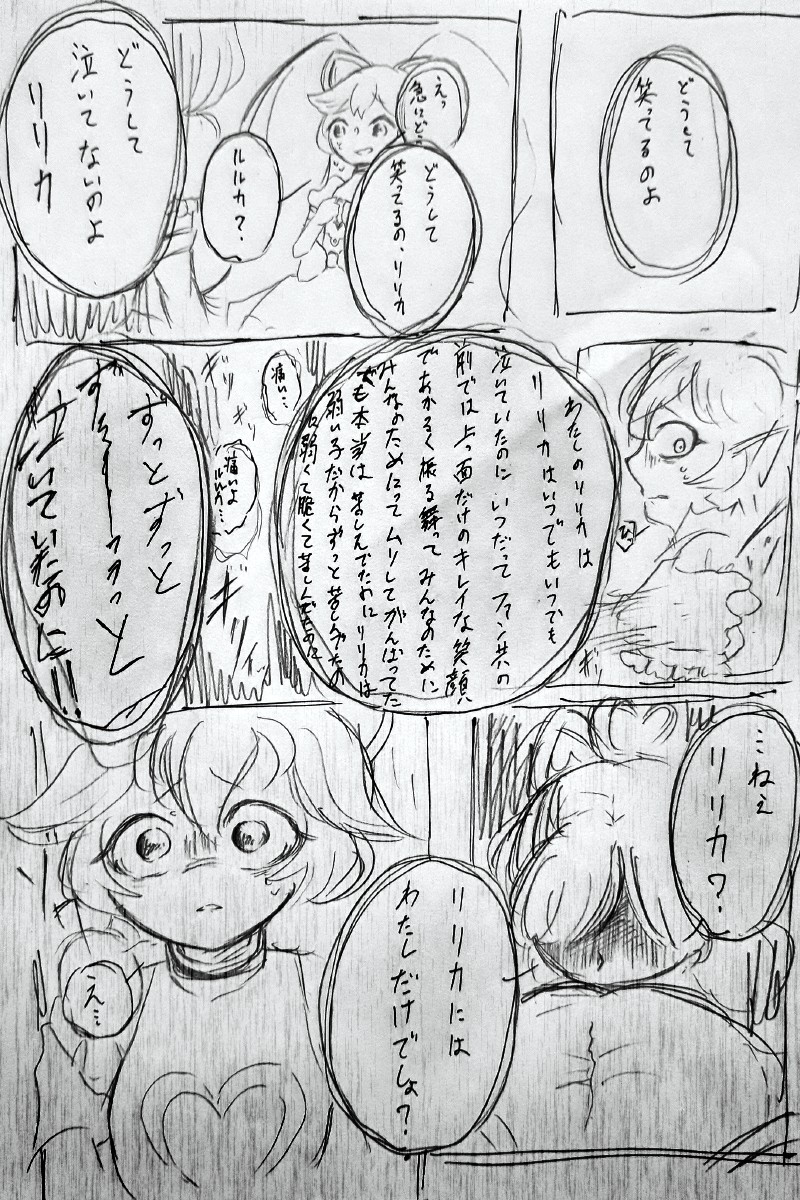 どうして
笑ってるのよ
えっ
急にど
どうして
笑ってるの、リリカ
ルルカ？
どうして
泣いてないのよ
リリカ
ひっ
わたしのリリカは
リリカはいつでもいつでも
泣いていたのに いつだって ファン共の
前では上っ面だけのキレイな笑顔
であかるく振る舞って みんなのために
みんなのためにって ムリしてがんばってた
でも本当は 苦しんでために リリカは
弱い子だからずっと苦しんでたの
弱くて脆くて苦しんでたのに
痛い…
痛いよ
ルルカ…
ギリ
ギリ
ギ
ずっとずっと
ずーっと
泣いていたのに!!
…ねえ
リリカ？
リリカには
わたしだけでしょ？
え…